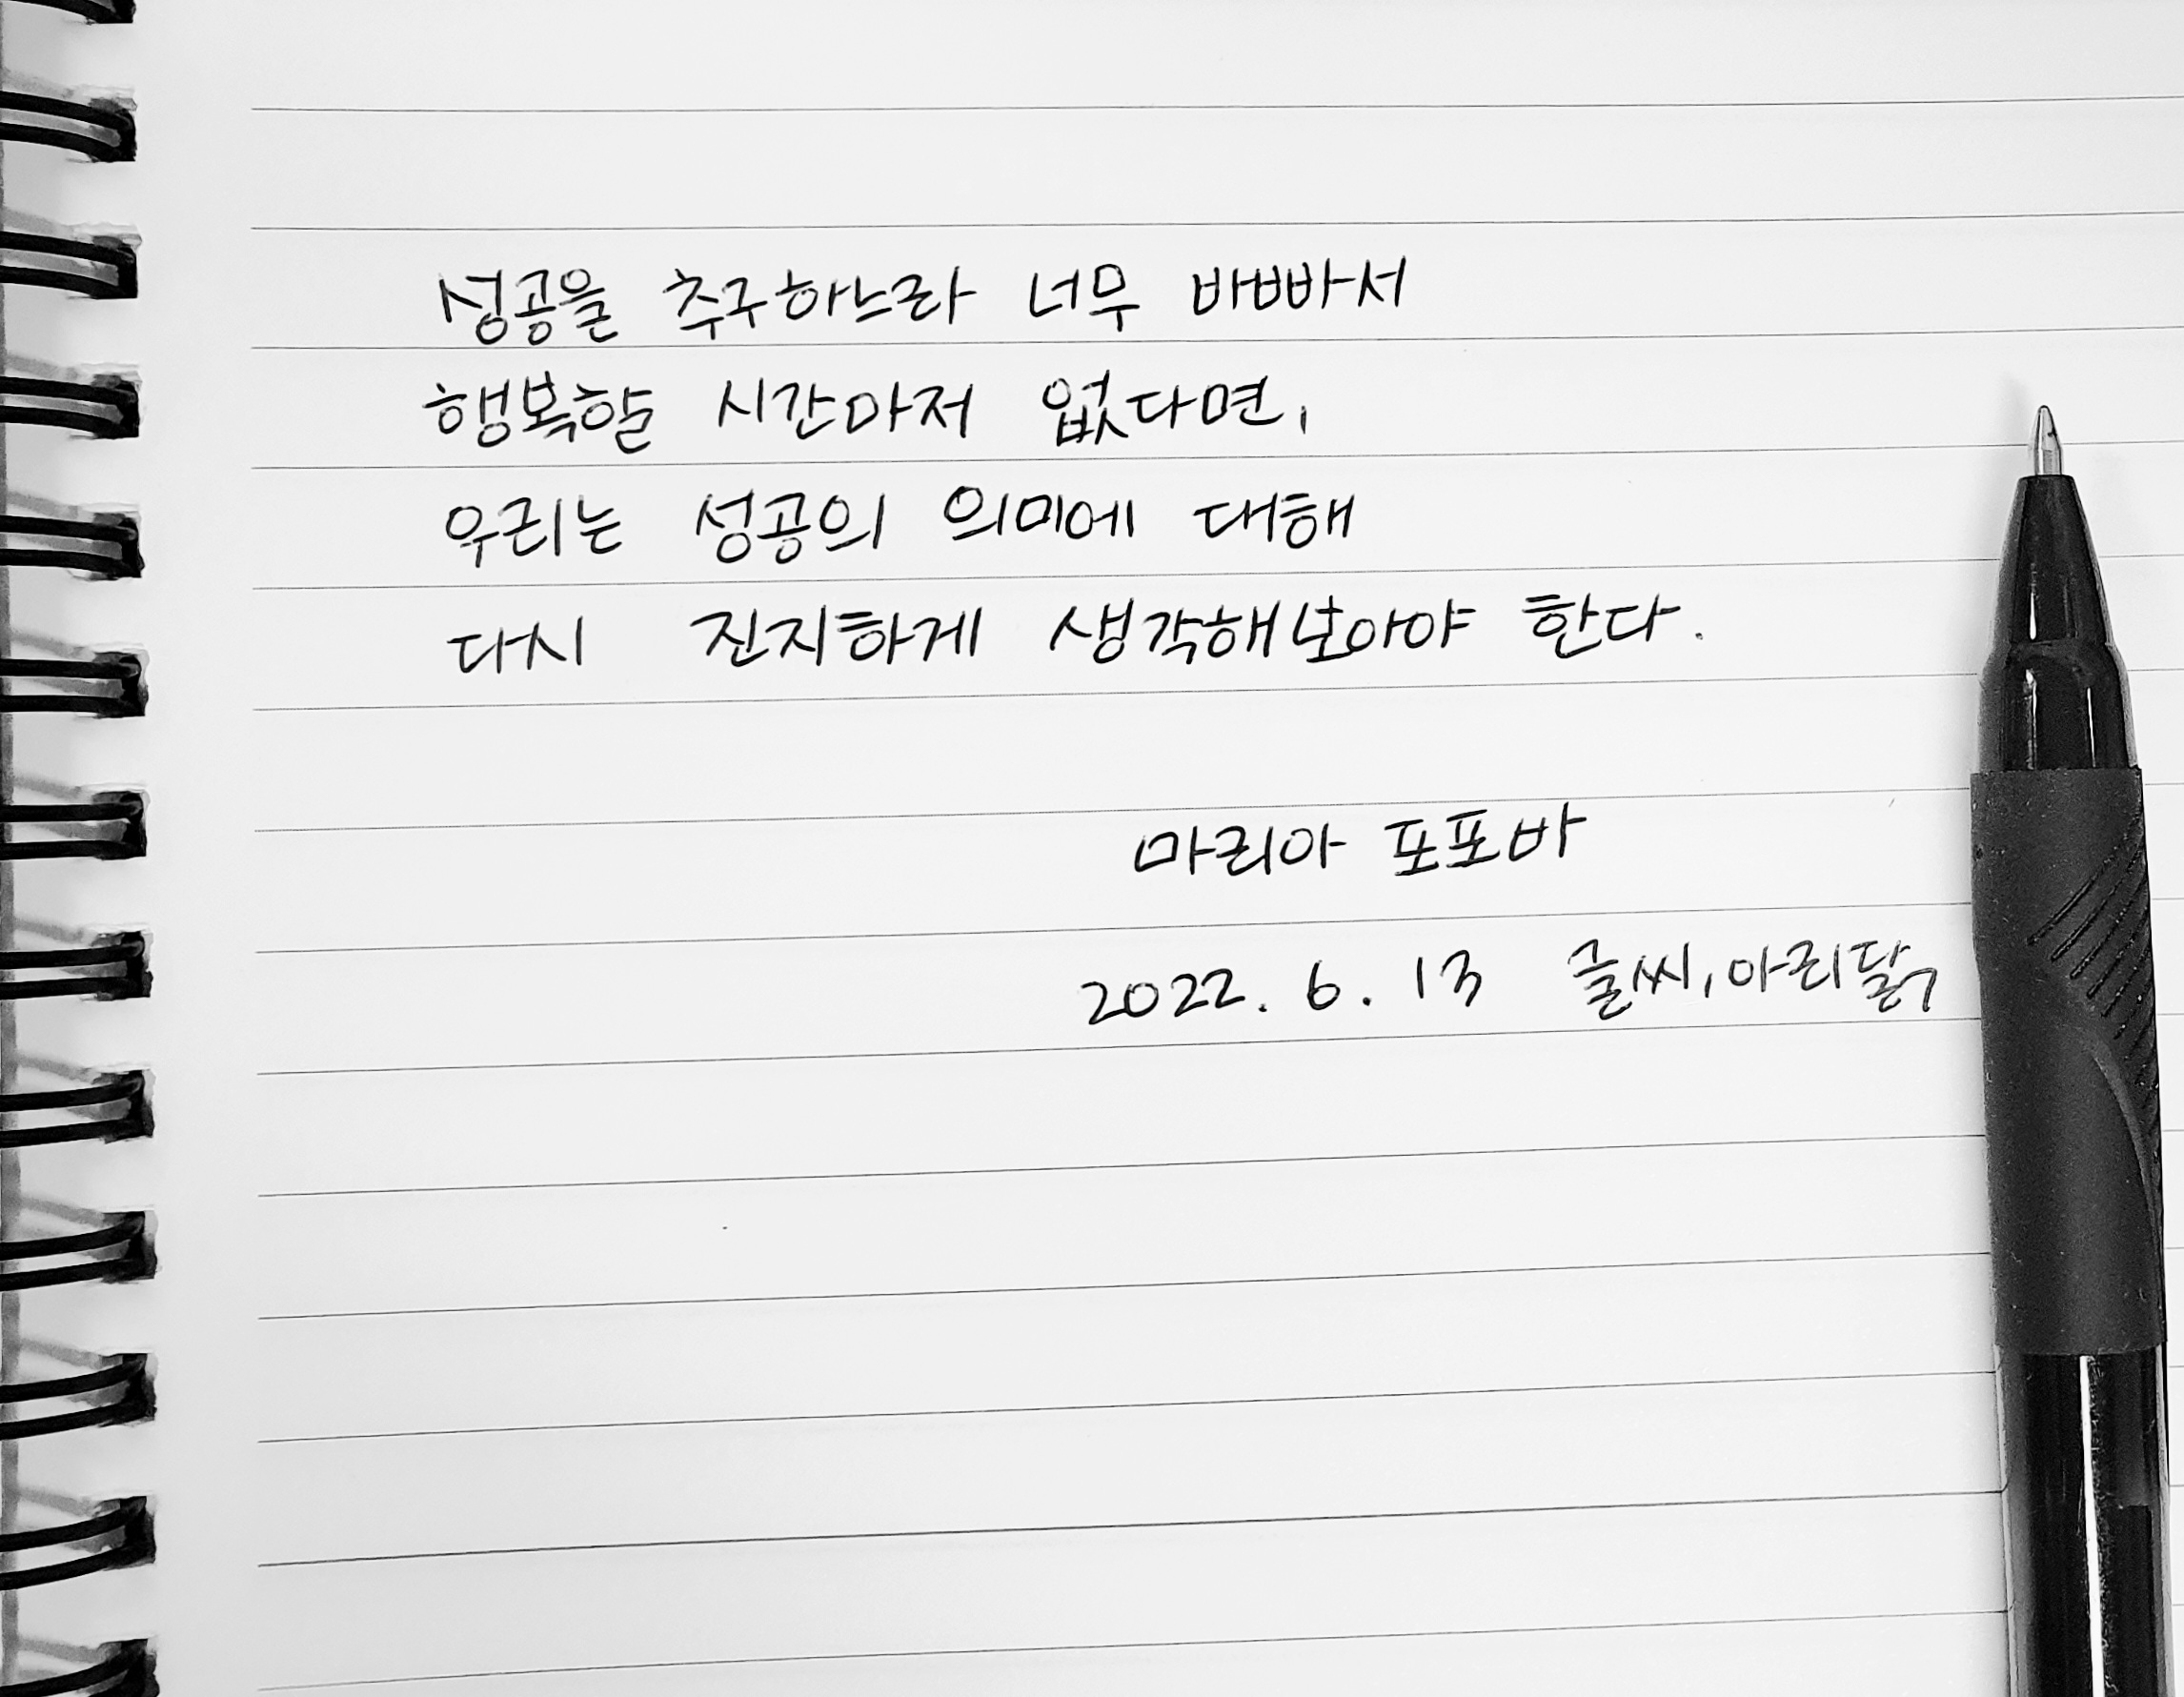 성공을 추구하느라 너무 바빠서
행복할 시간마저 없다면,
우리는 성공의 의미에 대해
다시 진지하게 생각해보아야 한다.
마리아 포포바
2022. 6. 13 글씨, 아리닭